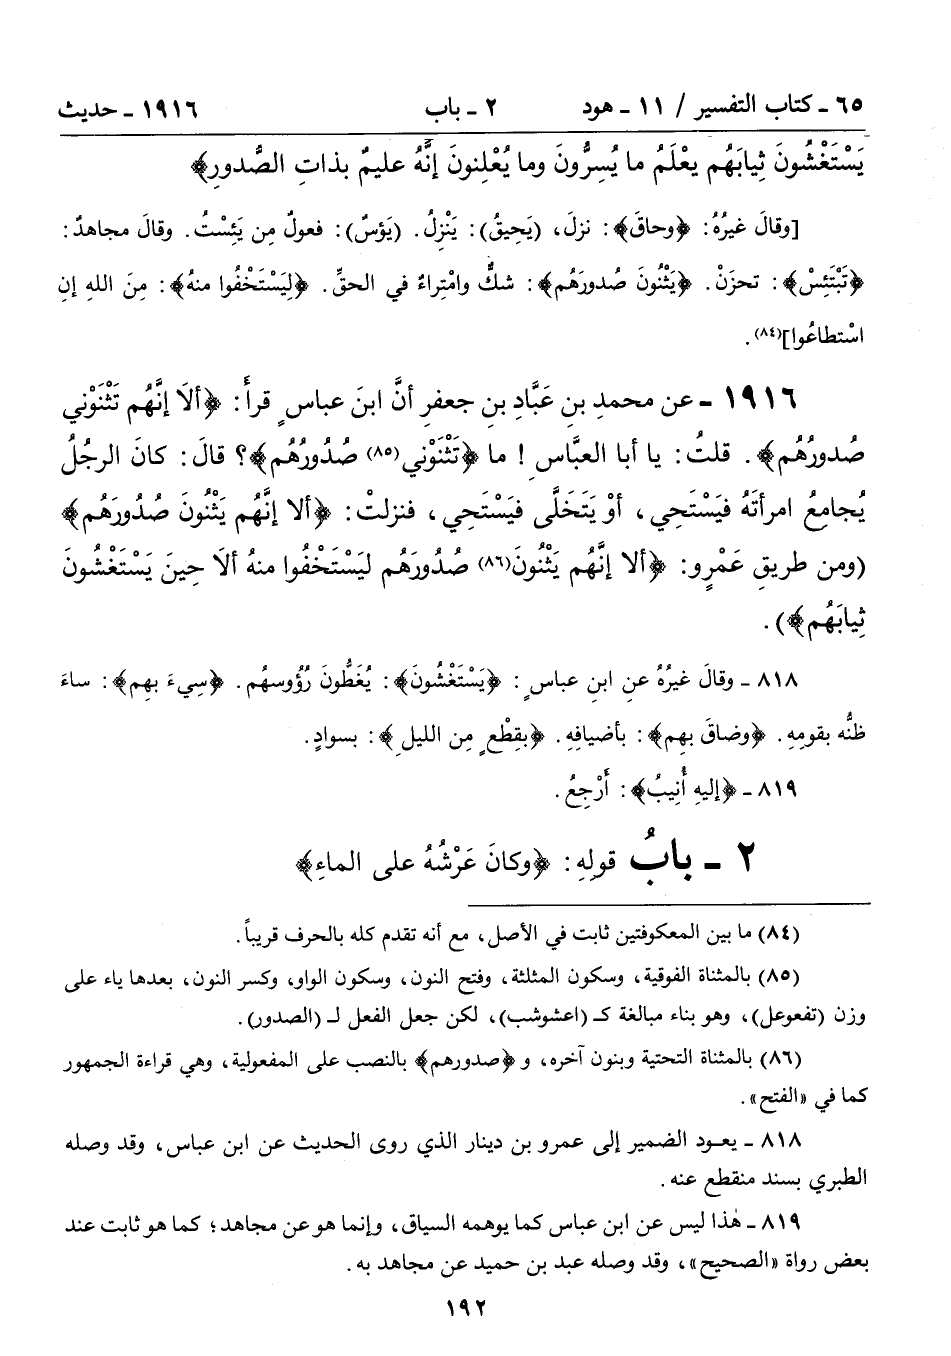 ٦٥ ـ كتاب التفسير / ١١ ـ هود ٢ ـ باب ١٩١٦ ـ حديث
يَسْتَغْشُونَ ثِيابَهُم يعْلَمُ ما يُسِرُّونَ وما يُعْلِنونَ إنَّهُ عليمٌ بذاتِ الصُّدورِ﴾
[وقالَ غيرُهُ: ﴿وحاقَ﴾: نزلَ، (يَحيقُ): يَنْزِلُ. (يَؤسٌ): فعولٌ مِن يَئِسْتُ. وقالَ مجاهدٌ:
﴿تَبْتَئِسْ﴾: تحزَنْ. ﴿يَثْنُونَ صُدورَهُم﴾: شكٌّ وامْتِراءٌ في الحقِّ. ﴿لِيَسْتَخْفُوا منهُ﴾: مِنَ اللهِ إنِ
اسْتطاعُوا](٨٤).
١٩١٦ ـ عن محمدِ بنِ عَبَّادِ بنِ جعفرٍ أنَّ ابنَ عباسٍ قرأَ: ﴿ألَا إنَّهُم تَثْنَوْني
صُدورُهُم﴾. قلتُ: يا أبا العبَّاسِ! ما ﴿تَثْنَوْني(٨٥) صُدُورُهُم﴾؟ قالَ: كانَ الرجُلُ
يُجامِعُ امرأتَهُ فيَسْتَحِي، أوْ يَتَخَلَّى فيَسْتَحِي، فنزلتْ: ﴿ألا إنَّهُم يَثْنُونَ صُدُورَهُم﴾
(ومن طريقِ عَمْرٍو: ﴿ألا إنَّهُم يَثْنُونَ(٨٦) صُدُورَهُم ليَسْتَخْفُوا منهُ ألَا حِينَ يَسْتَغْشُونَ
ثِيابَهُم﴾).
٨١٨ ـ وقالَ غيرُهُ عنِ ابنِ عباسٍ: ﴿يَسْتَغْشُونَ﴾: يُغَطُّونَ رُؤوسهُم. ﴿سِيءَ بهِم﴾: ساءَ
ظنُّه بقومِهِ. ﴿وضاقَ بهِم﴾: بأضيافِهِ. ﴿بقِطْعٍ مِن الليلِ﴾: بسوادٍ.
٨١٩ ـ ﴿إليهِ أُنِيبُ﴾: أَرْجِعُ.
٢ ـ بابُ قولِهِ: ﴿وكانَ عَرْشُهُ على الماءِ﴾
(٨٤) ما بين المعكوفتين ثابت في الأصل، مع أنه تقدم كله بالحرف قريباً.
(٨٥) بالمثناة الفوقية، وسكون المثلثة، وفتح النون، وسكون الواو، وكسر النون، بعدها ياء على
وزن (تفعوعل)، وهو بناء مبالغة كـ (اعشوشب)، لكن جعل الفعل لـ (الصدور).
(٨٦) بالمثناة التحتية وبنون آخره، و﴿صدورهم﴾ بالنصب على المفعولية، وهي قراءة الجمهور
كما في «الفتح».
٨١٨ ـ يعود الضمير إلى عمرو بن دينار الذي روى الحديث عن ابن عباس، وقد وصله
الطبري بسند منقطع عنه.
٨١٩ ـ هٰذا ليس عن ابن عباس كما يوهمه السياق، وإنما هو عن مجاهد؛ كما هو ثابت عند
بعض رواة «الصحيح»، وقد وصله عبد بن حميد عن مجاهد به.
١٩٢